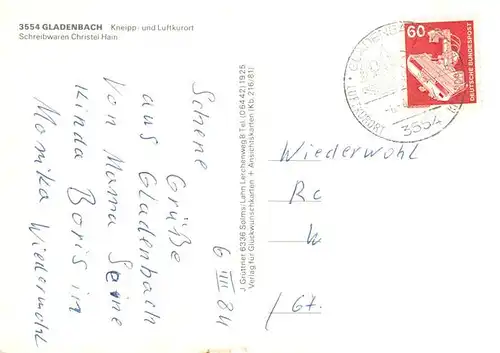 3554 GLADENBACH Kneipp- und Luftkurort
Schreibwaren Christel Hain
Schöne Grüße
aus Gladenbach
Von Mama Seine
Kinda Boris in
Monika Wiederwohl
6 VIII 84
J. Grüttner 6336 Solms/Lahn Lerchenweg 8 Tel. (06442) 1925
Verlag für Glückwunschkarten + Ansichtskarten (Kb 216/81)
GLADENBACH
LUFTKURORT
3554
60
DEUTSCHE BUNDESPOST
Wiederwohl
Rc
W
/Gt.